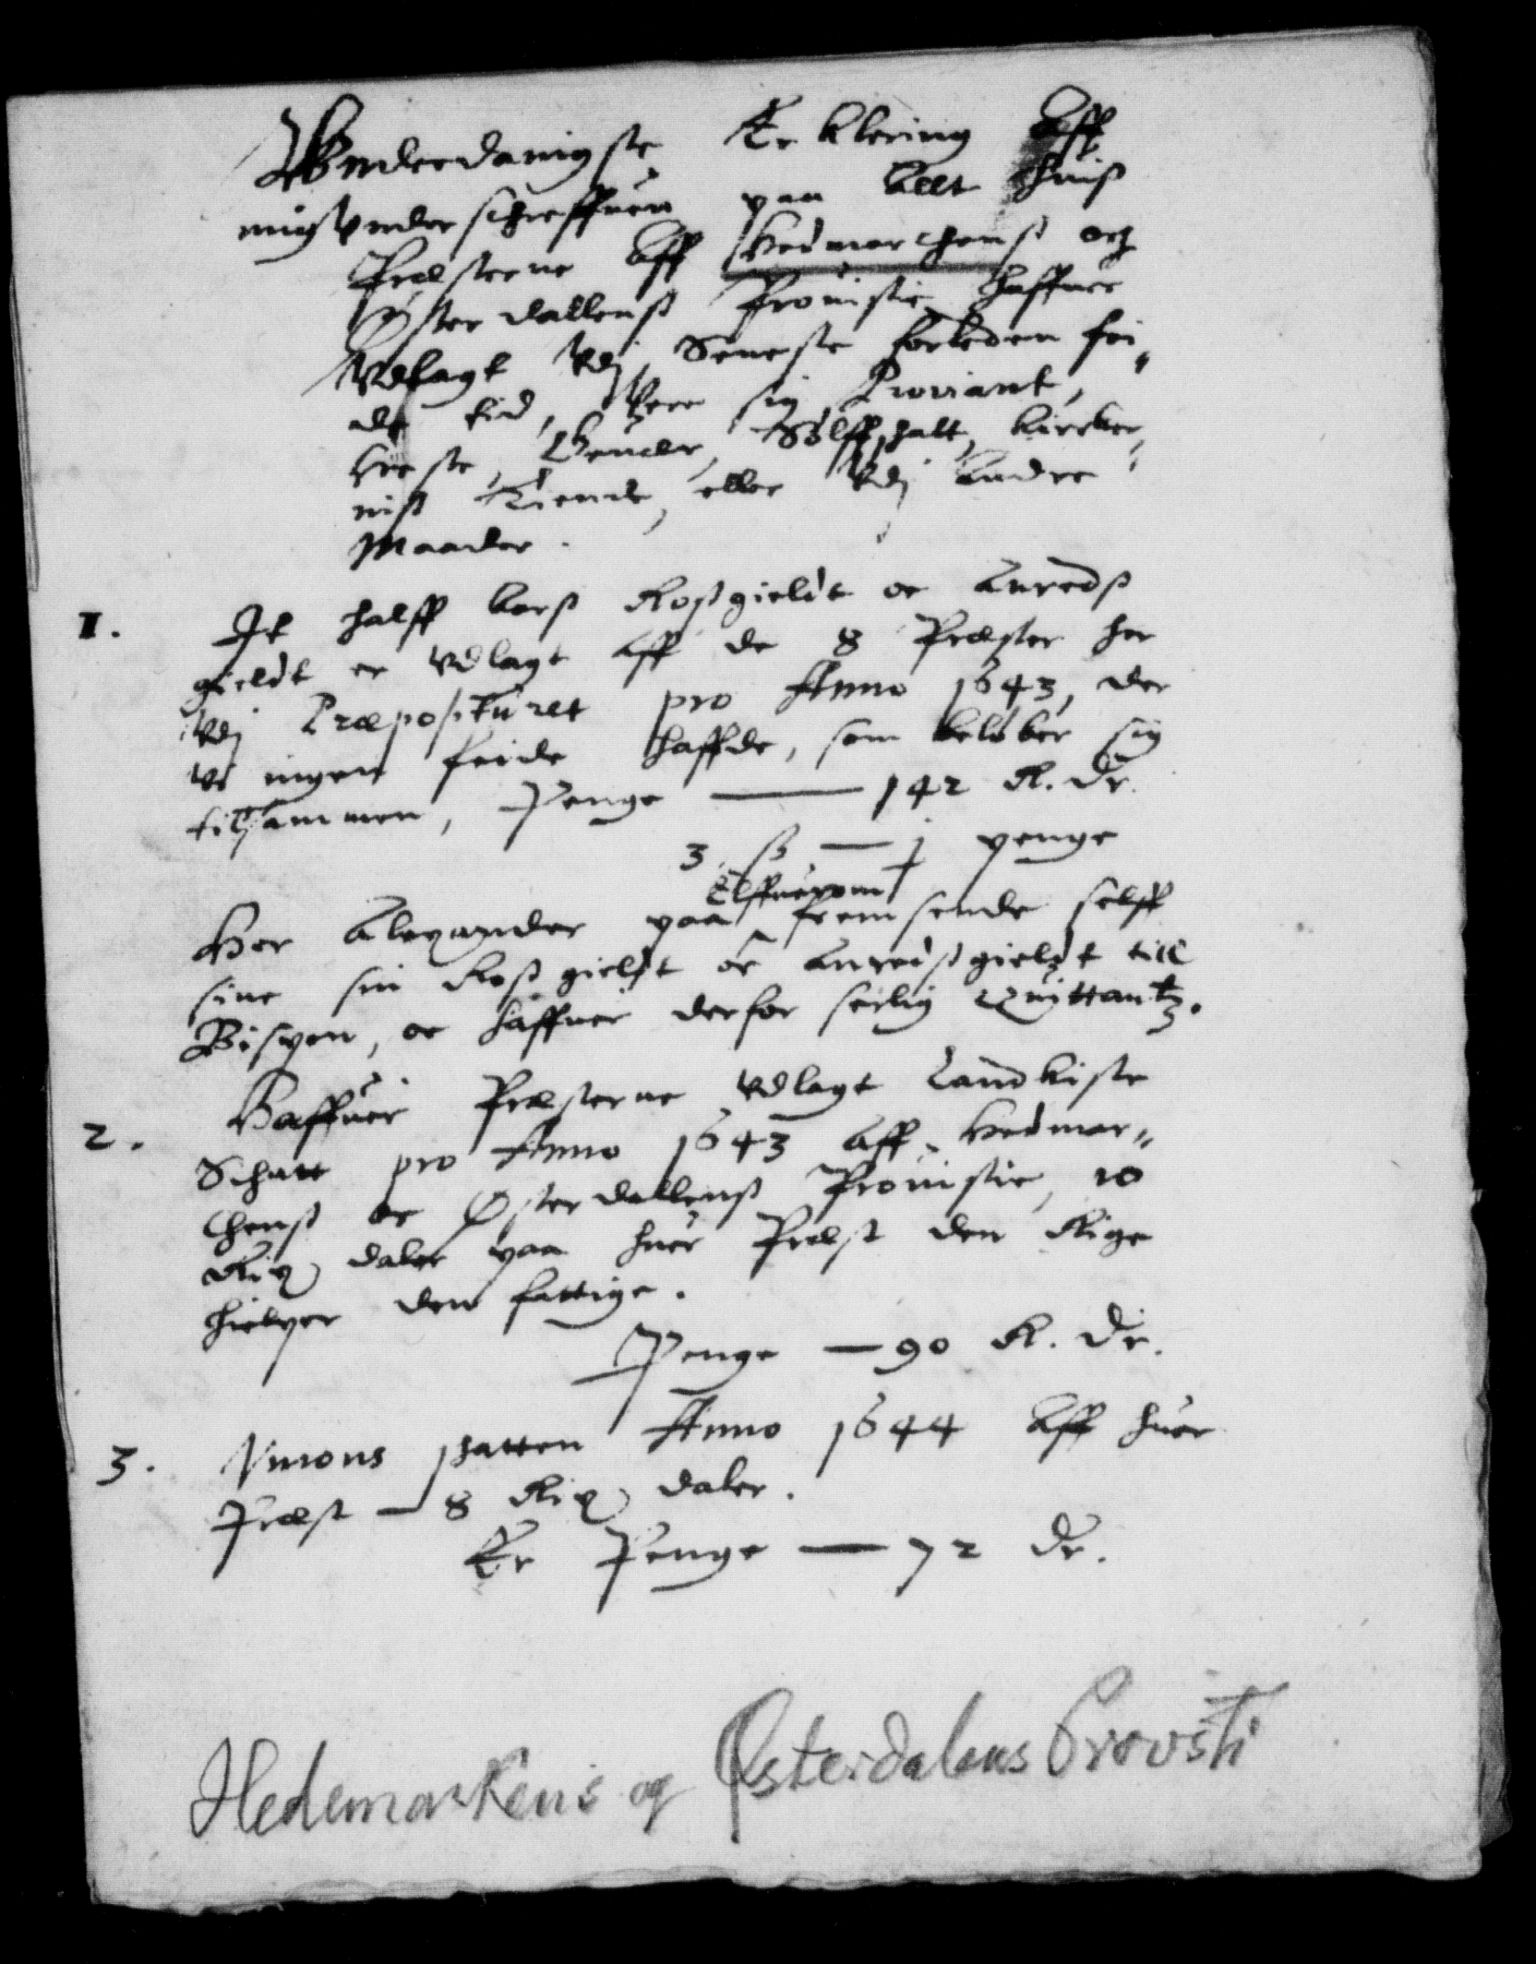 Vnderdanigste Erklering Aff
mig vnderschreffuen paa alt huiß
Præsterne Aff Hedmarchenß och
Østerdallenß Prouistie haffuer
Vdlagt Vdj Seneste forleden fei„
de tid, Vere sig Proviant,
Heste, Geuær, Sølffschatt, kircker„
niß Tiende, eller Vdj Andre
Maader.
1. It halff Aarß Roßgieldt oc Anredß
gieldt er Vdlagt Aff de 8 Præster her
Vdj Præposituret pro Anno 1643, der
Vi ingen feide haffde, som beløber sig
tilsammen, Penge — 142 R. Dr.
3 ß — j penge
Elffuerom
Her Alexander paa fremsende selff
sine sin Roßgieldt oc Anredßgieldt till
Bispen, oc haffuer derfor serlig Quittantz.
2. Haffuer Præsterne Vdlagt Landkiste
Schatt pro Anno 1643 Aff Hedmar„
chenß oc Østerdallenß Prouistie, 10
Rix daler paa huer Præst den Rige
hielper den fattige.
Penge — 90 R. Dr.
3. Vnions schatten Anno 1644 Aff huer
Præst — 8 Rix daler.
Er Penge — 72 Dr.
Hedemarkens og Østerdalens Provsti